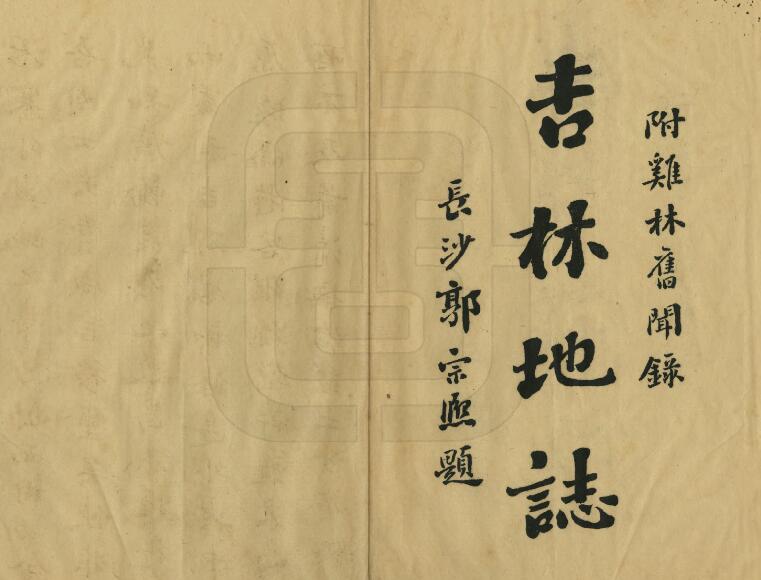 附雞林舊聞錄
吉林地誌
長沙郭宗熙題